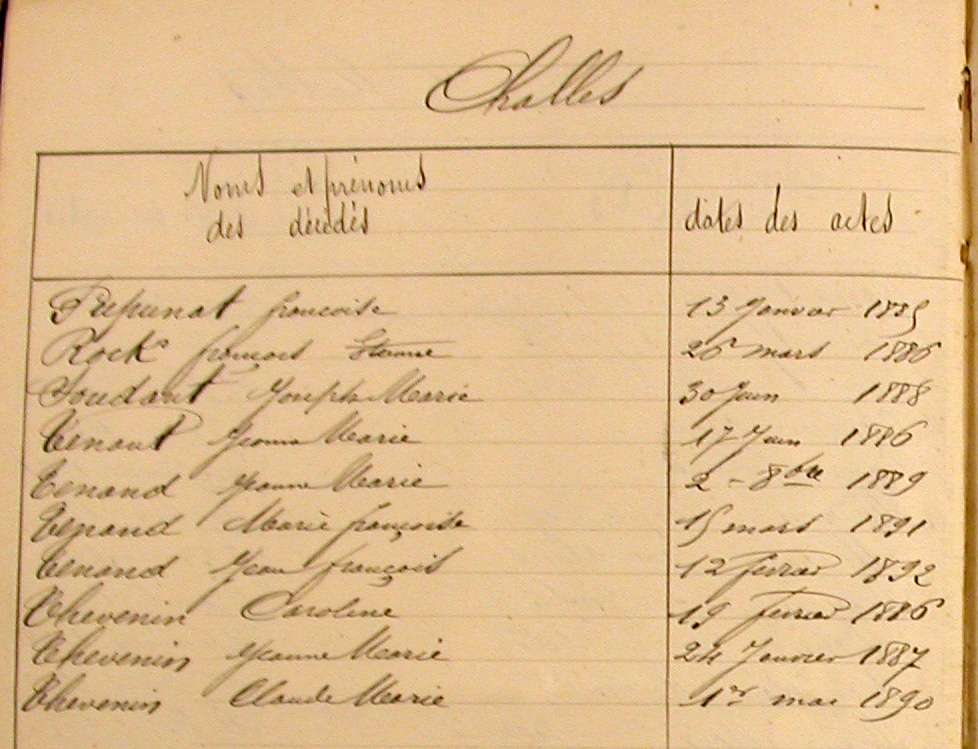 Challes
Noms et prénoms
des décédés
dates des actes
françoise 13 Janvier 1885
Rock françois Etienne 26 mars 1886
Soudant Joseph Marie 30 Juin 1888
Tenaut Jeanne Marie 17 Juin 1886
Tenand Jeanne Marie 2 - 8bre 1889
Tenand Marie françoise 15 mars 1891
Tenand Jean françois 12 fevrier 1892
Thevenin Caroline 19 fevrier 1886
Thevenin Jeanne Marie 24 Janvier 1887
Thevenin Claude Marie 1er mai 1890